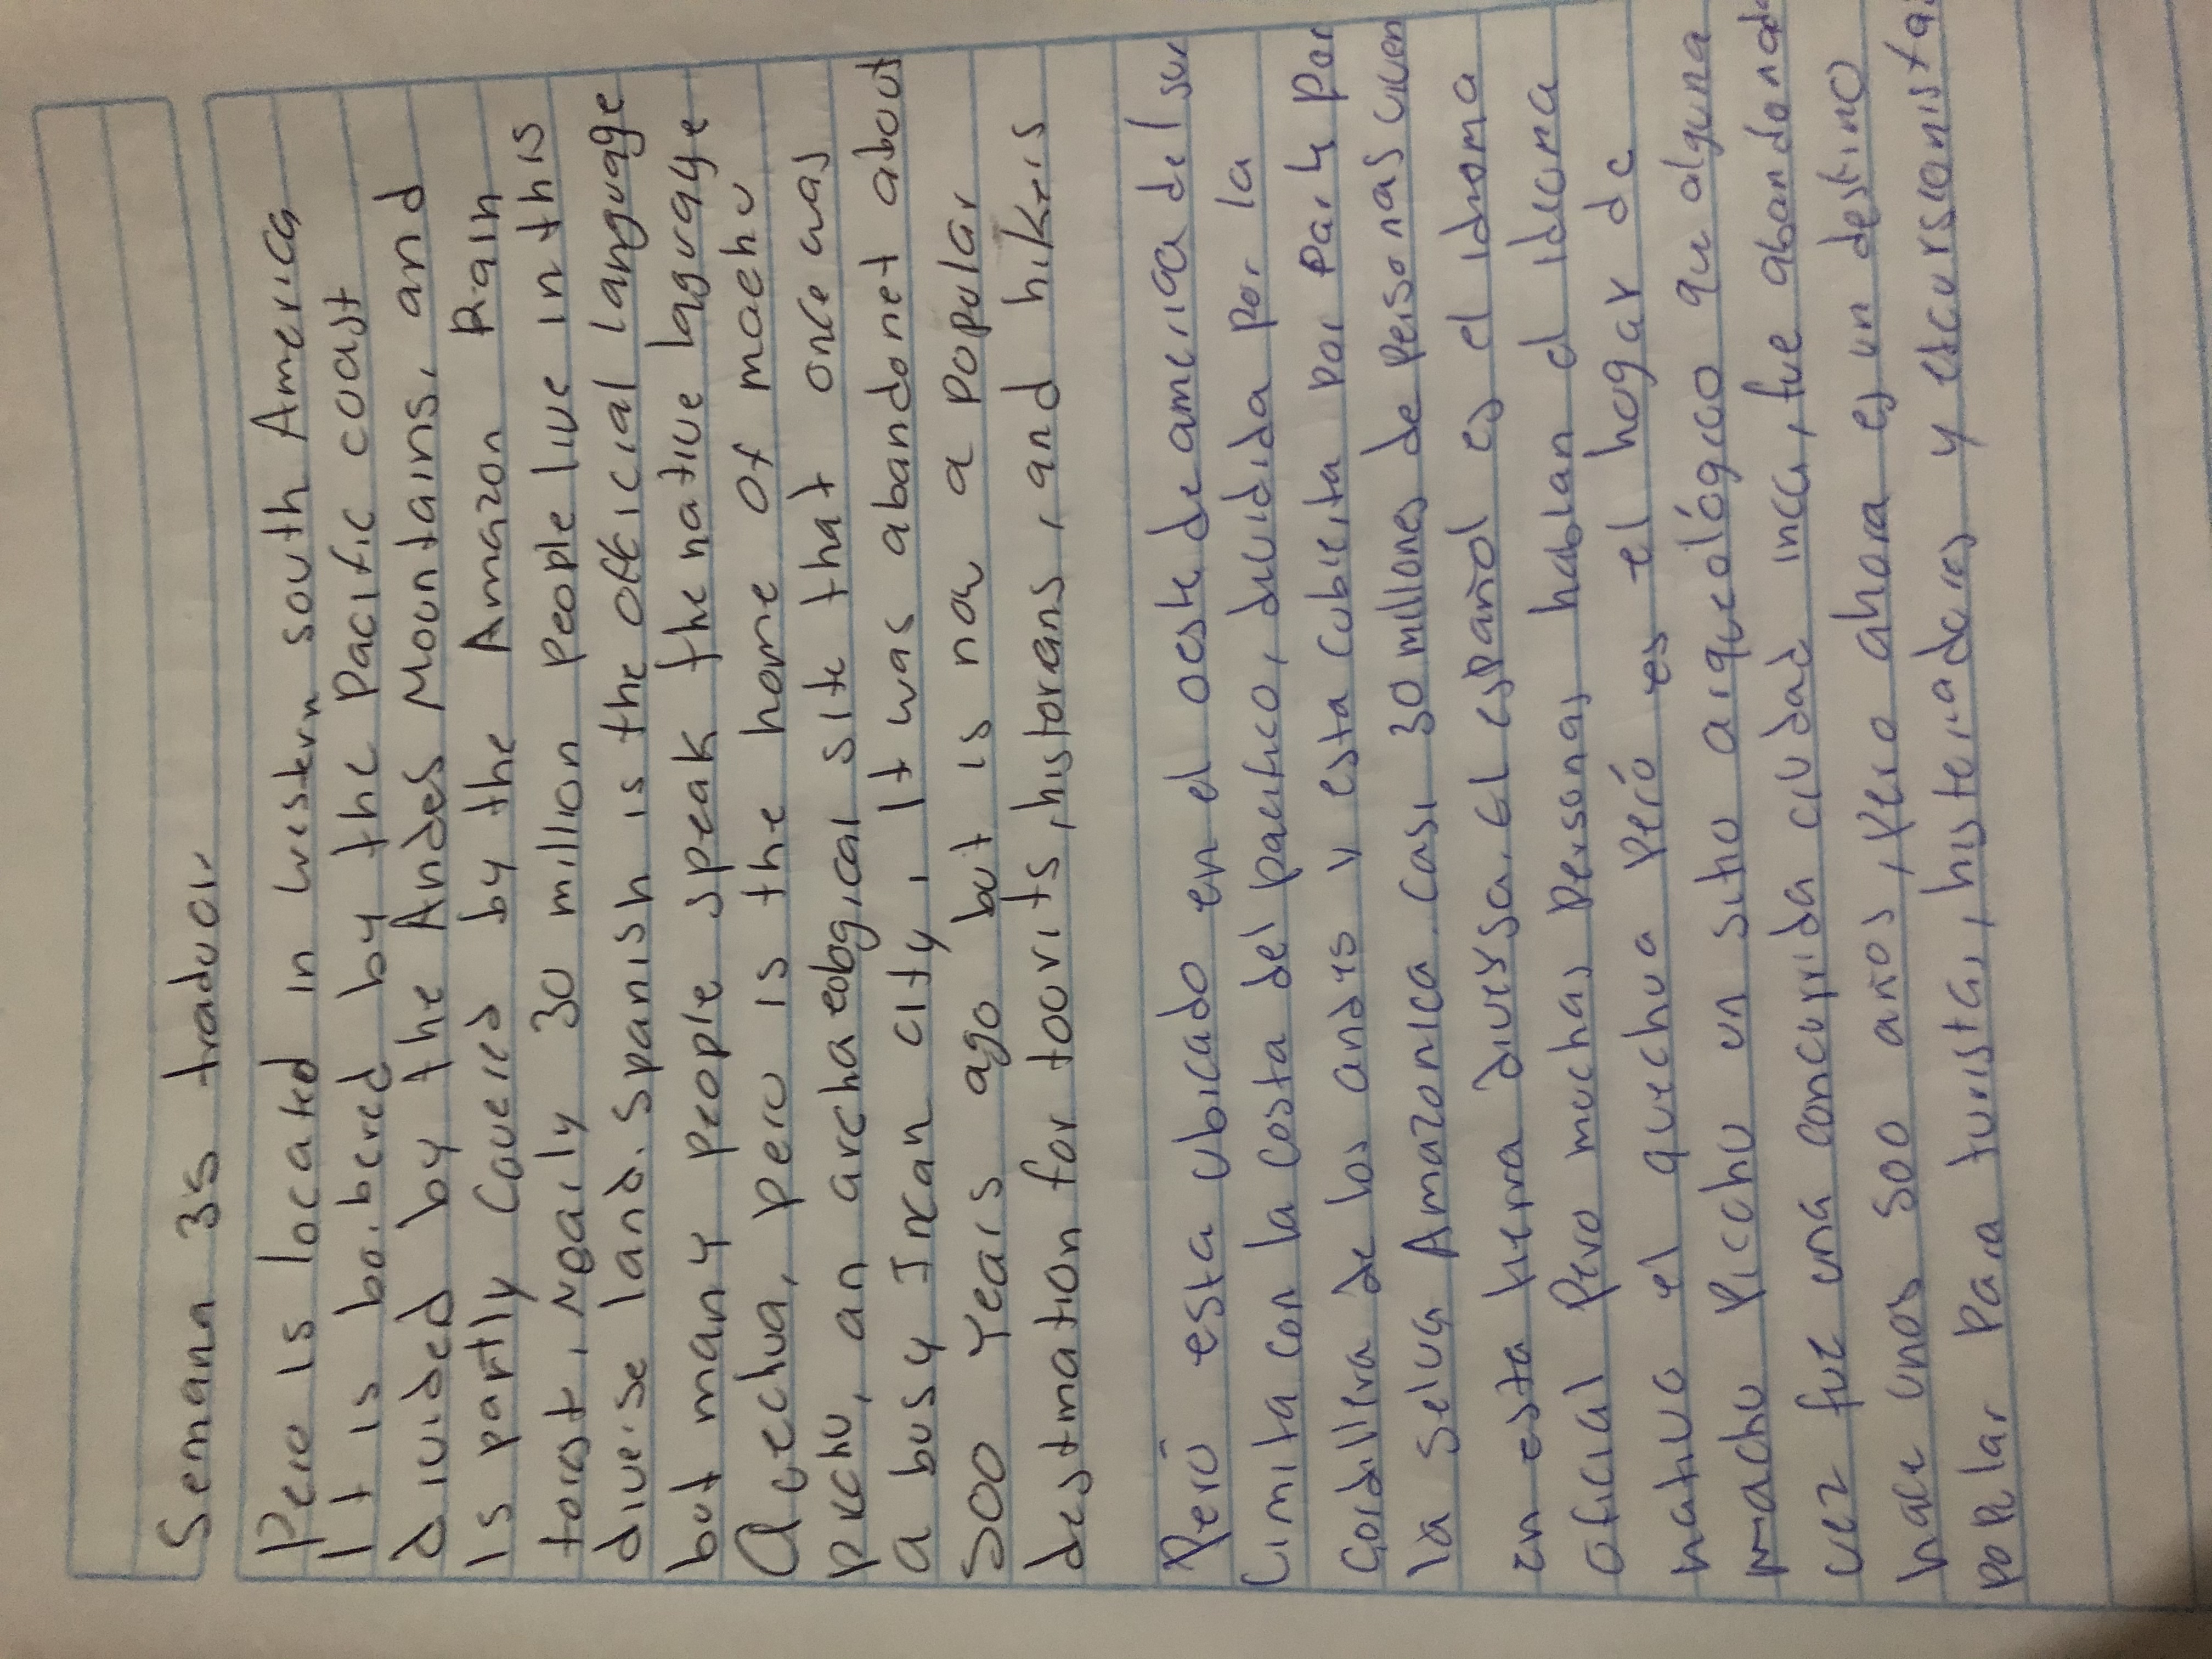 Semana 35 traducir
Peru is located in western south America
It is borbered by the Pacific coast
divided by the Andes Mountains, and
is partly Covered by the Amazon Rain
forest, Nearly 30 million people live in this
diverse land. Spanish is the official language
but many people speak the native laguraye
Quechua, peru is the home of machu
picchu, an archaeological site that once was
a busy Incan city, It was abandonet about
500 Years ago but is now a popular
destination for tourits, historans, and hikers
Perú esta ubicado en el oeste de america del sur
Limita con la costa del pacifico, dividida por la
Cordillera de los andes y esta cubierta por parte por
la selva Amazonica. casi 30 millones de personas viven
en esta tierra diversa. el español es el idioma
oficial Pero muchas personas hablan el idioma
nativo el quechua Perú es el hogar de
machu Picchu un sitio arqueológico que alguna
vez fue una concurrida ciudad inca, fue abandonada
hace unos 500 años, pero ahora es un destino
popular para turistas, historiadores y escursionistas